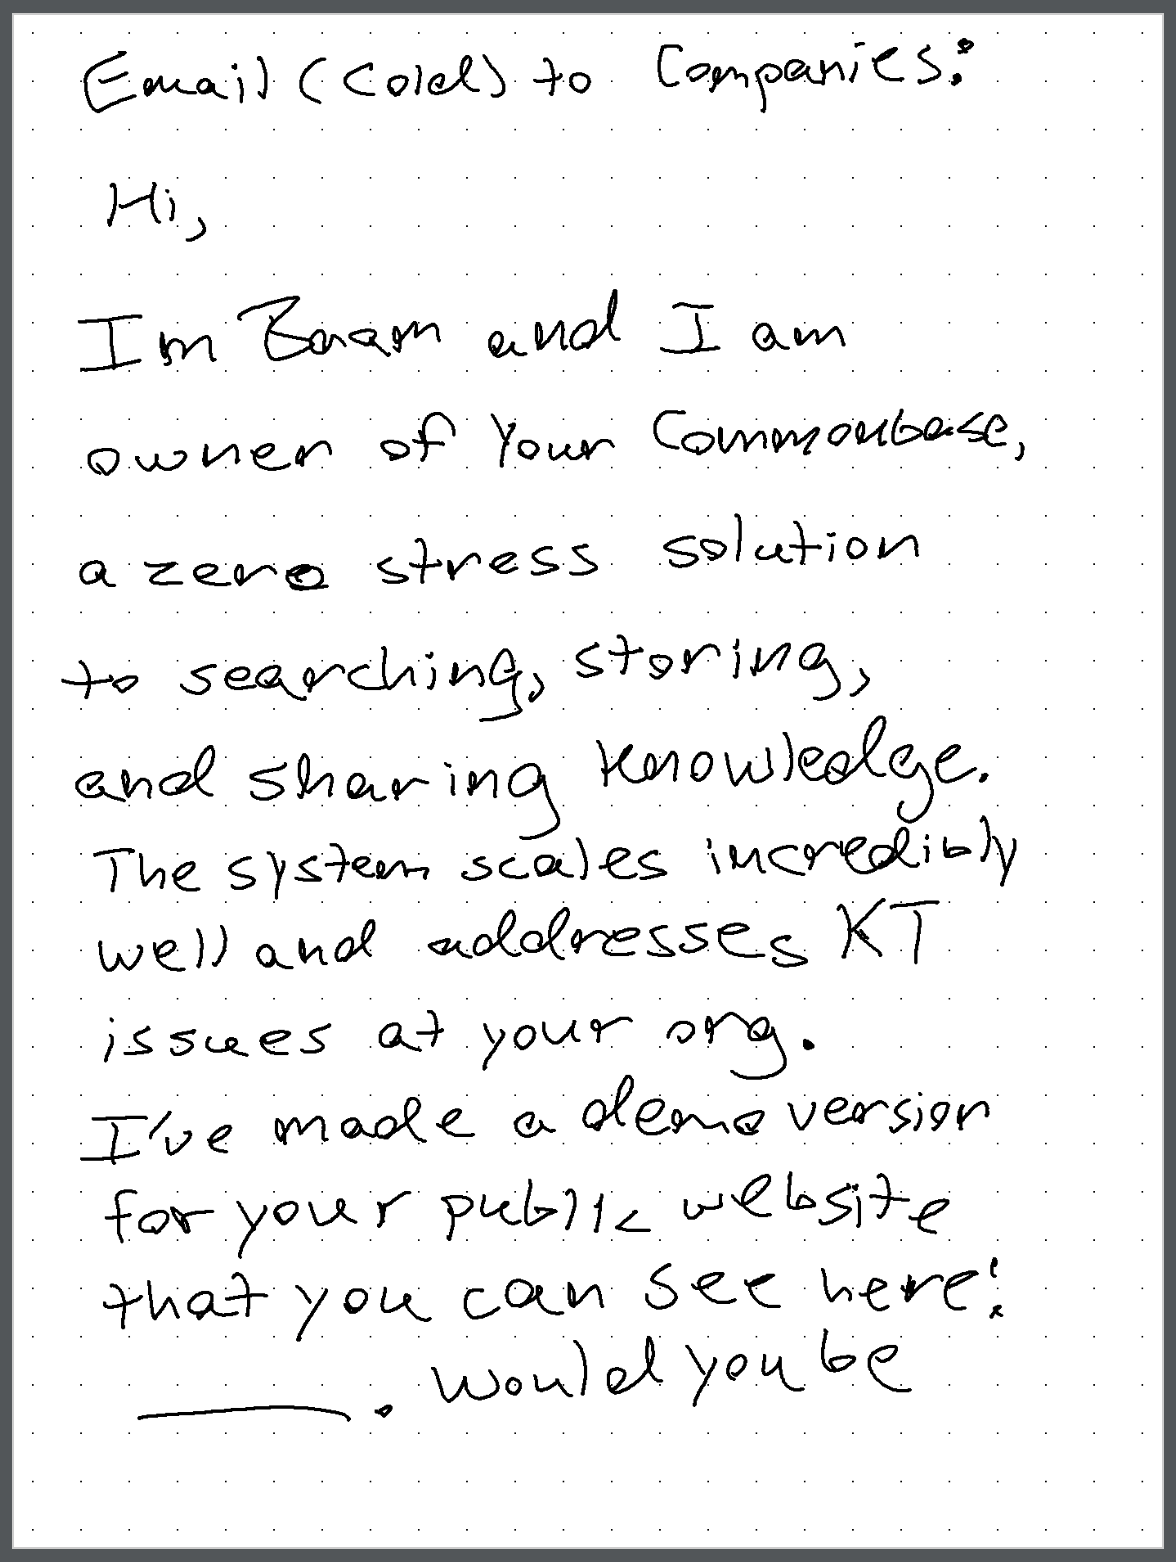 Email (Cold) to Companies:
Hi,
Im Bram and I am
owner of Your Commonbase,
a zero stress solution
to searching, storing,
and sharing knowledge.
The system scales incredibly
well and addresses KT
issues at your org.
I've made a demo version
for your public website
that you can see here:
______. Would you be